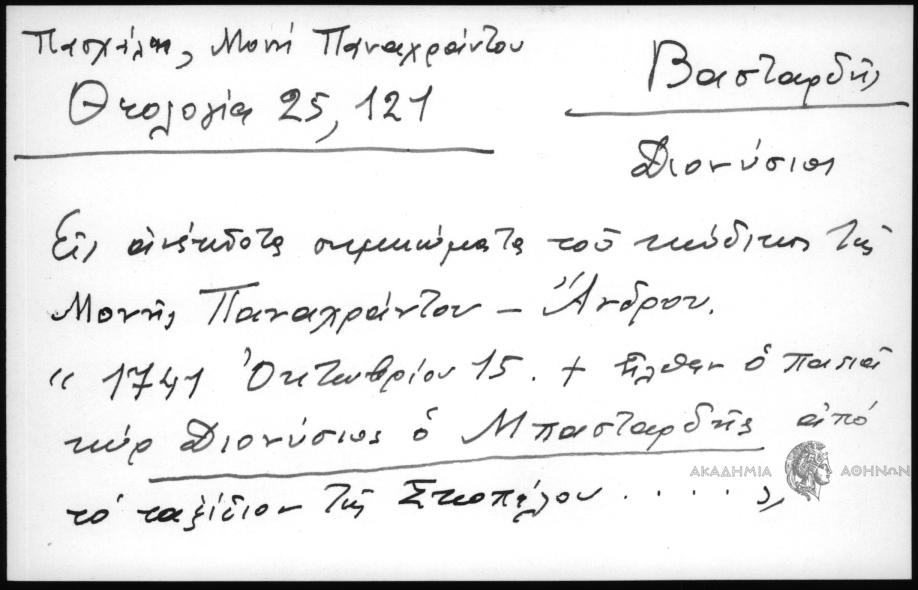 Πασχάλης, Μονή Παναχράντου
Θεολογία 25, 121
Βασταρδής
Διονύσιος
Εἰς ἀνέκδοτα σημειώματα τοῦ κώδικος τῆς
Μονῆς Παναχράντου – Ἄνδρου.
“ 1741 Ὀκτωβρίου 15. + ἦλθεν ὁ παπᾶ
κύρ Διονύσιος ὁ Μπασταρδῆς ἀπό
τό ταξίδιον τῆς Σκοπέλου . . . . . ”
ΑΚΑΔΗΜΙΑ ΑΘΗΝΩΝ